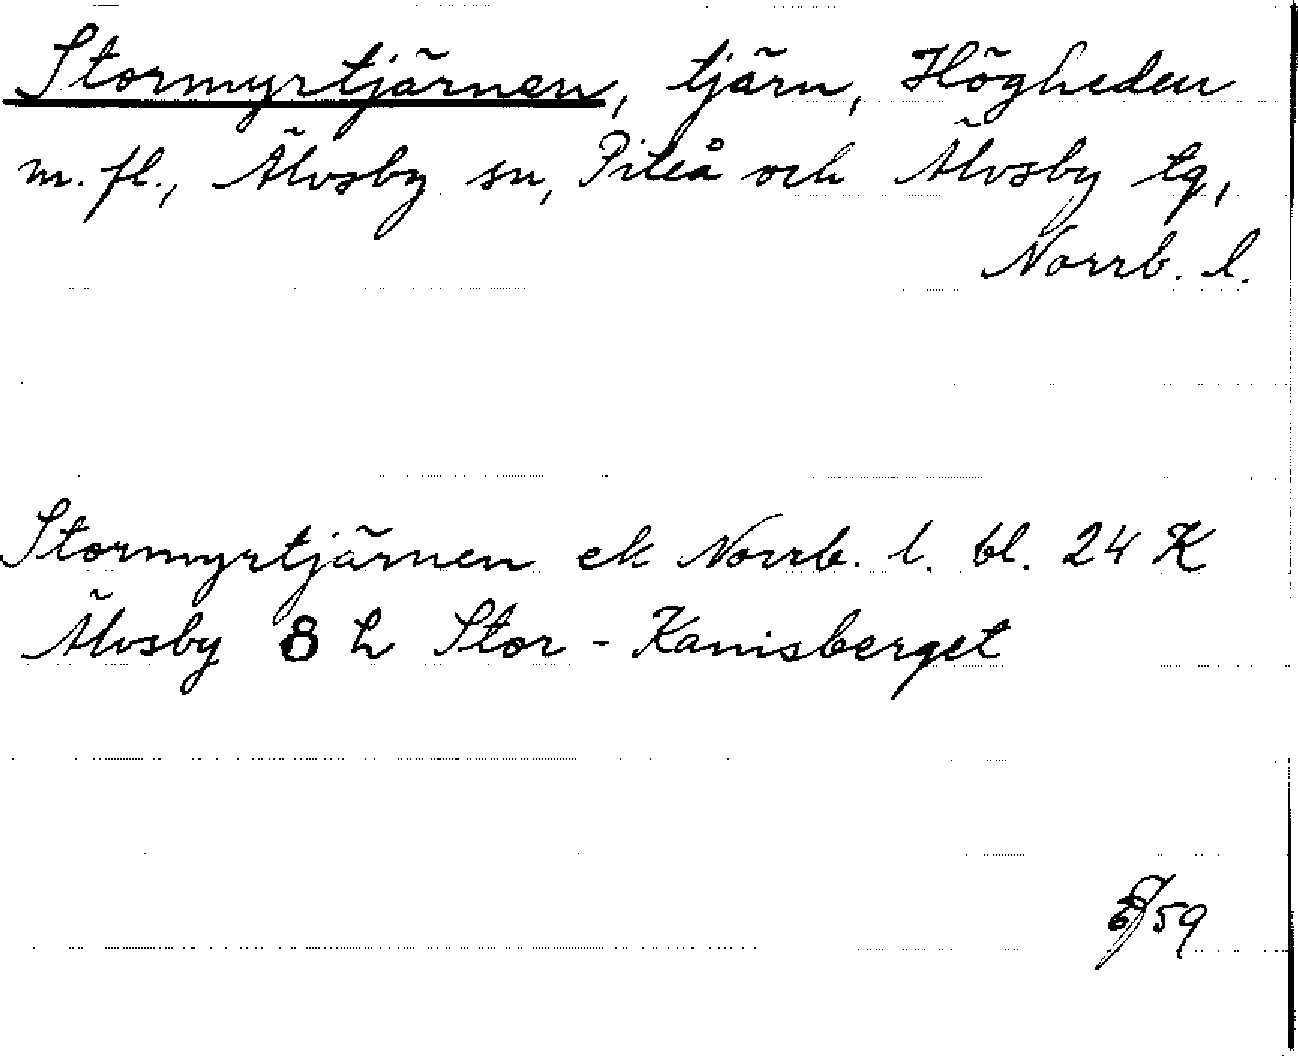 Stormyrtjärnen, tjärn, Högheden
m. fl., Älvsby sn, Piteå och Älvsby tg,
Norrb. l.
Stormyrtjärnen ek Norrb. l. bl. 24 K
Älvsby 8 h Stor-Kanisberget
59